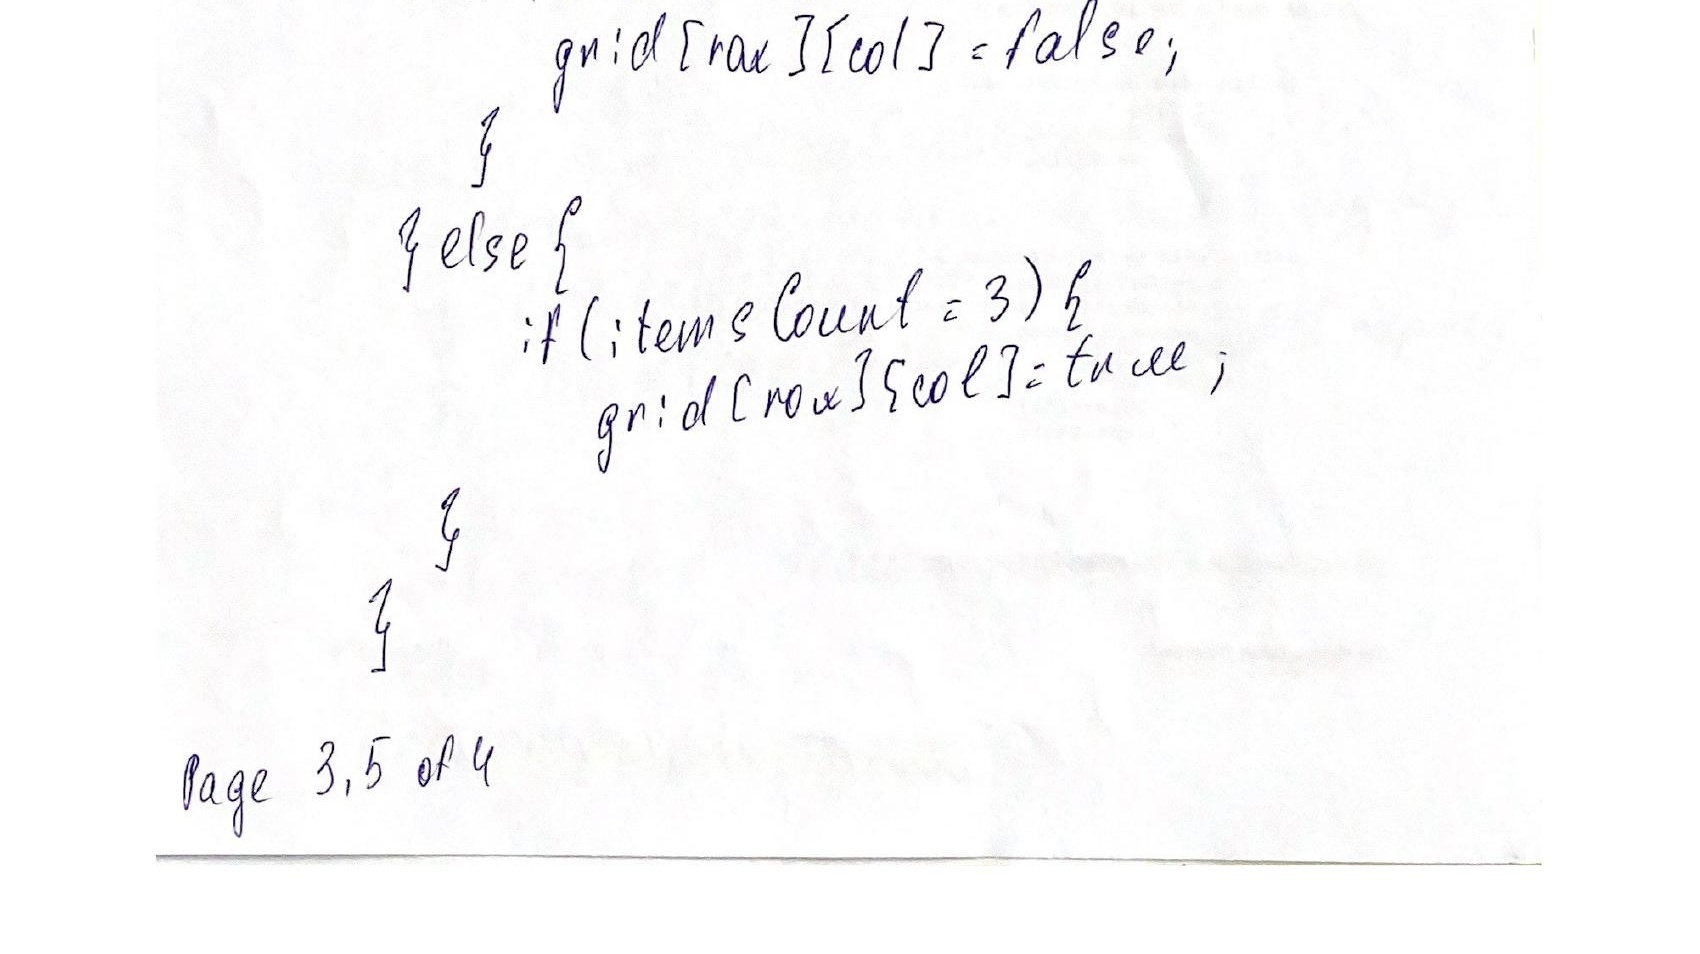 grid[rox][col] = false;
}
} else {
if (itemsCount = 3) {
grid[rox][col] = true;
}
}
Page 3,5 of 4